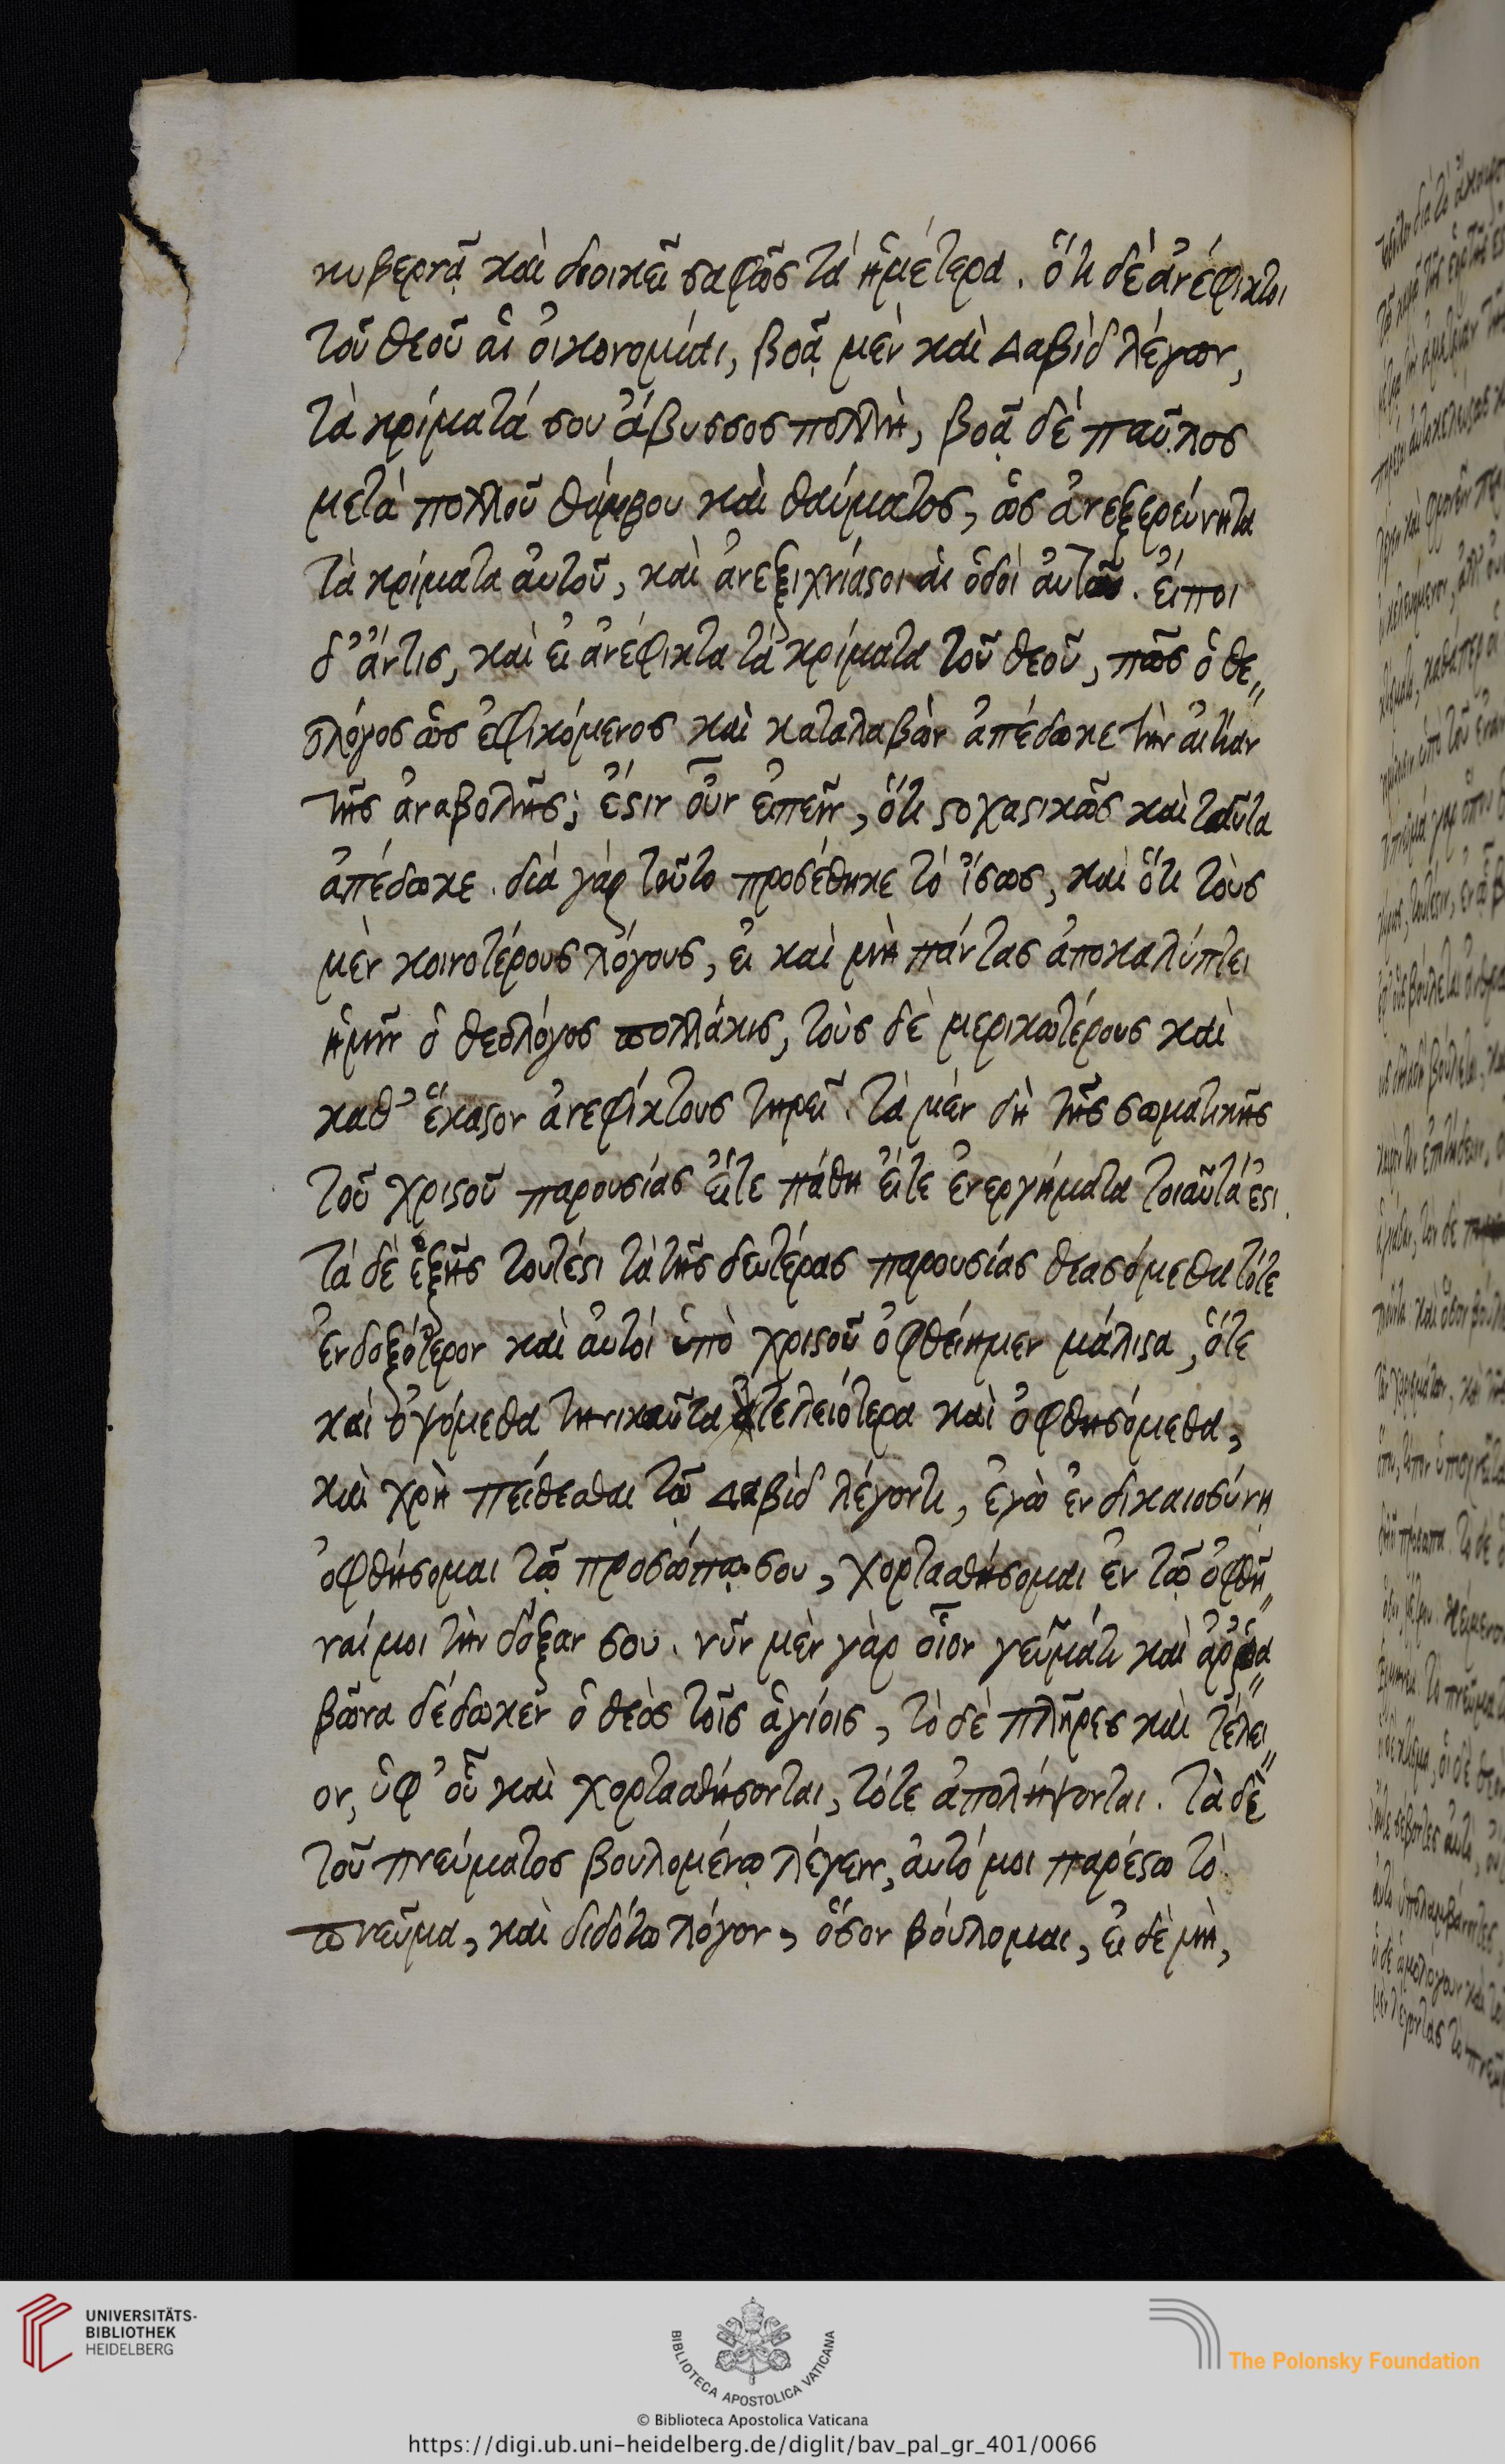 κυβερνᾷ καὶ διοικεῖ σαφῶς τὰ ἡμέτερα. ὅτι δὲ ἀνέφικτοι
τοῦ θεοῦ αἱ οἰκονομίαι, βοᾷ μὲν καὶ Δαβὶδ λέγων,
τὰ κρίματά σου ἄβυσσος πολλὴ, βοᾷ δὲ παῦλος
μετὰ πολλοῦ θάμβου καὶ θαύματος, ὡς ἀνεξερεύνητα
τὰ κρίματα αὐτοῦ, καὶ ἀνεξιχνίαστοι αἱ ὁδοὶ αὐτοῦ. εἴποι
δ' ἄντις, καὶ εἰ ἀνέφικτα τὰ κρίματα τοῦ θεοῦ, πῶς ὁ θε„
ολόγος ὡς ἐφικόμενος καὶ καταλαβὼν ἀπέδωκε τὴν αἰτίαν
τῆς ἀναβολῆς; ἔστιν οὖν εἰπεῖν, ὅτι στοχαστικῶς καὶ ταῦτα
ἀπέδωκε. διὰ γὰρ τοῦτο προσέθηκε τὸ ἴσως, καὶ ὅτι τοὺς
μὲν κοινοτέρους λόγους, εἰ καὶ μὴ πάντας ἀποκαλύπτει
ἡμῖν ὁ θεολόγος πολλάκις, τοὺς δὲ μερικωτέρους καὶ
καθ' ἕκαστον ἀνεφίκτους τηρεῖ. τὰ μὲν δὴ τῆς σωματικῆς
τοῦ χριστοῦ παρουσίας εἴτε πάθη εἴτε ἐνεργήματα τοιαῦτά ἐστι.
τὰ δὲ ἑξῆς τουτέστι τὰ τῆς δευτέρας παρουσίας θεασόμεθα τότε
ἐνδοξότερον καὶ αὐτοὶ ὑπὸ χριστοῦ ὀφθείημεν μάλιστα, ὅτε
καὶ ὀψόμεθα τηνικαῦτα τελειότερα καὶ ὀφθησόμεθα,
καὶ χρὴ πείθεσθαι τῷ Δαβὶδ λέγοντι, ἐγὼ ἐν δικαιοσύνῃ
ὀφθήσομαι τῷ προσώπῳ σου, χορτασθήσομαι ἐν τῷ ὀφθῆ„
ναί μοι τὴν δόξαν σου. νῦν μὲν γὰρ οἷον γεῦμάτι καὶ ἀῤῥα„
βῶνα δέδωκεν ὁ θεὸς τοῖς ἁγίοις, τὸ δὲ πλῆρες καὶ τέλει„
ον, ὑφ' οὗ καὶ χορτασθήσονται, τότε ἀπολήψονται. τὰ δὲ
τοῦ πνεύματος βουλομένῳ λέγειν, αὐτό μοι παρέστω τὸ
πνεῦμα, καὶ διδότω λόγον, ὅσον βούλομαι, εἰ δὲ μὴ,
UNIVERSITÄTS-
BIBLIOTHEK
HEIDELBERG
BIBLIOTECA APOSTOLICA VATICANA
The Polonsky Foundation
© Biblioteca Apostolica Vaticana
https://digi.ub.uni-heidelberg.de/diglit/bav_pal_gr_401/0066